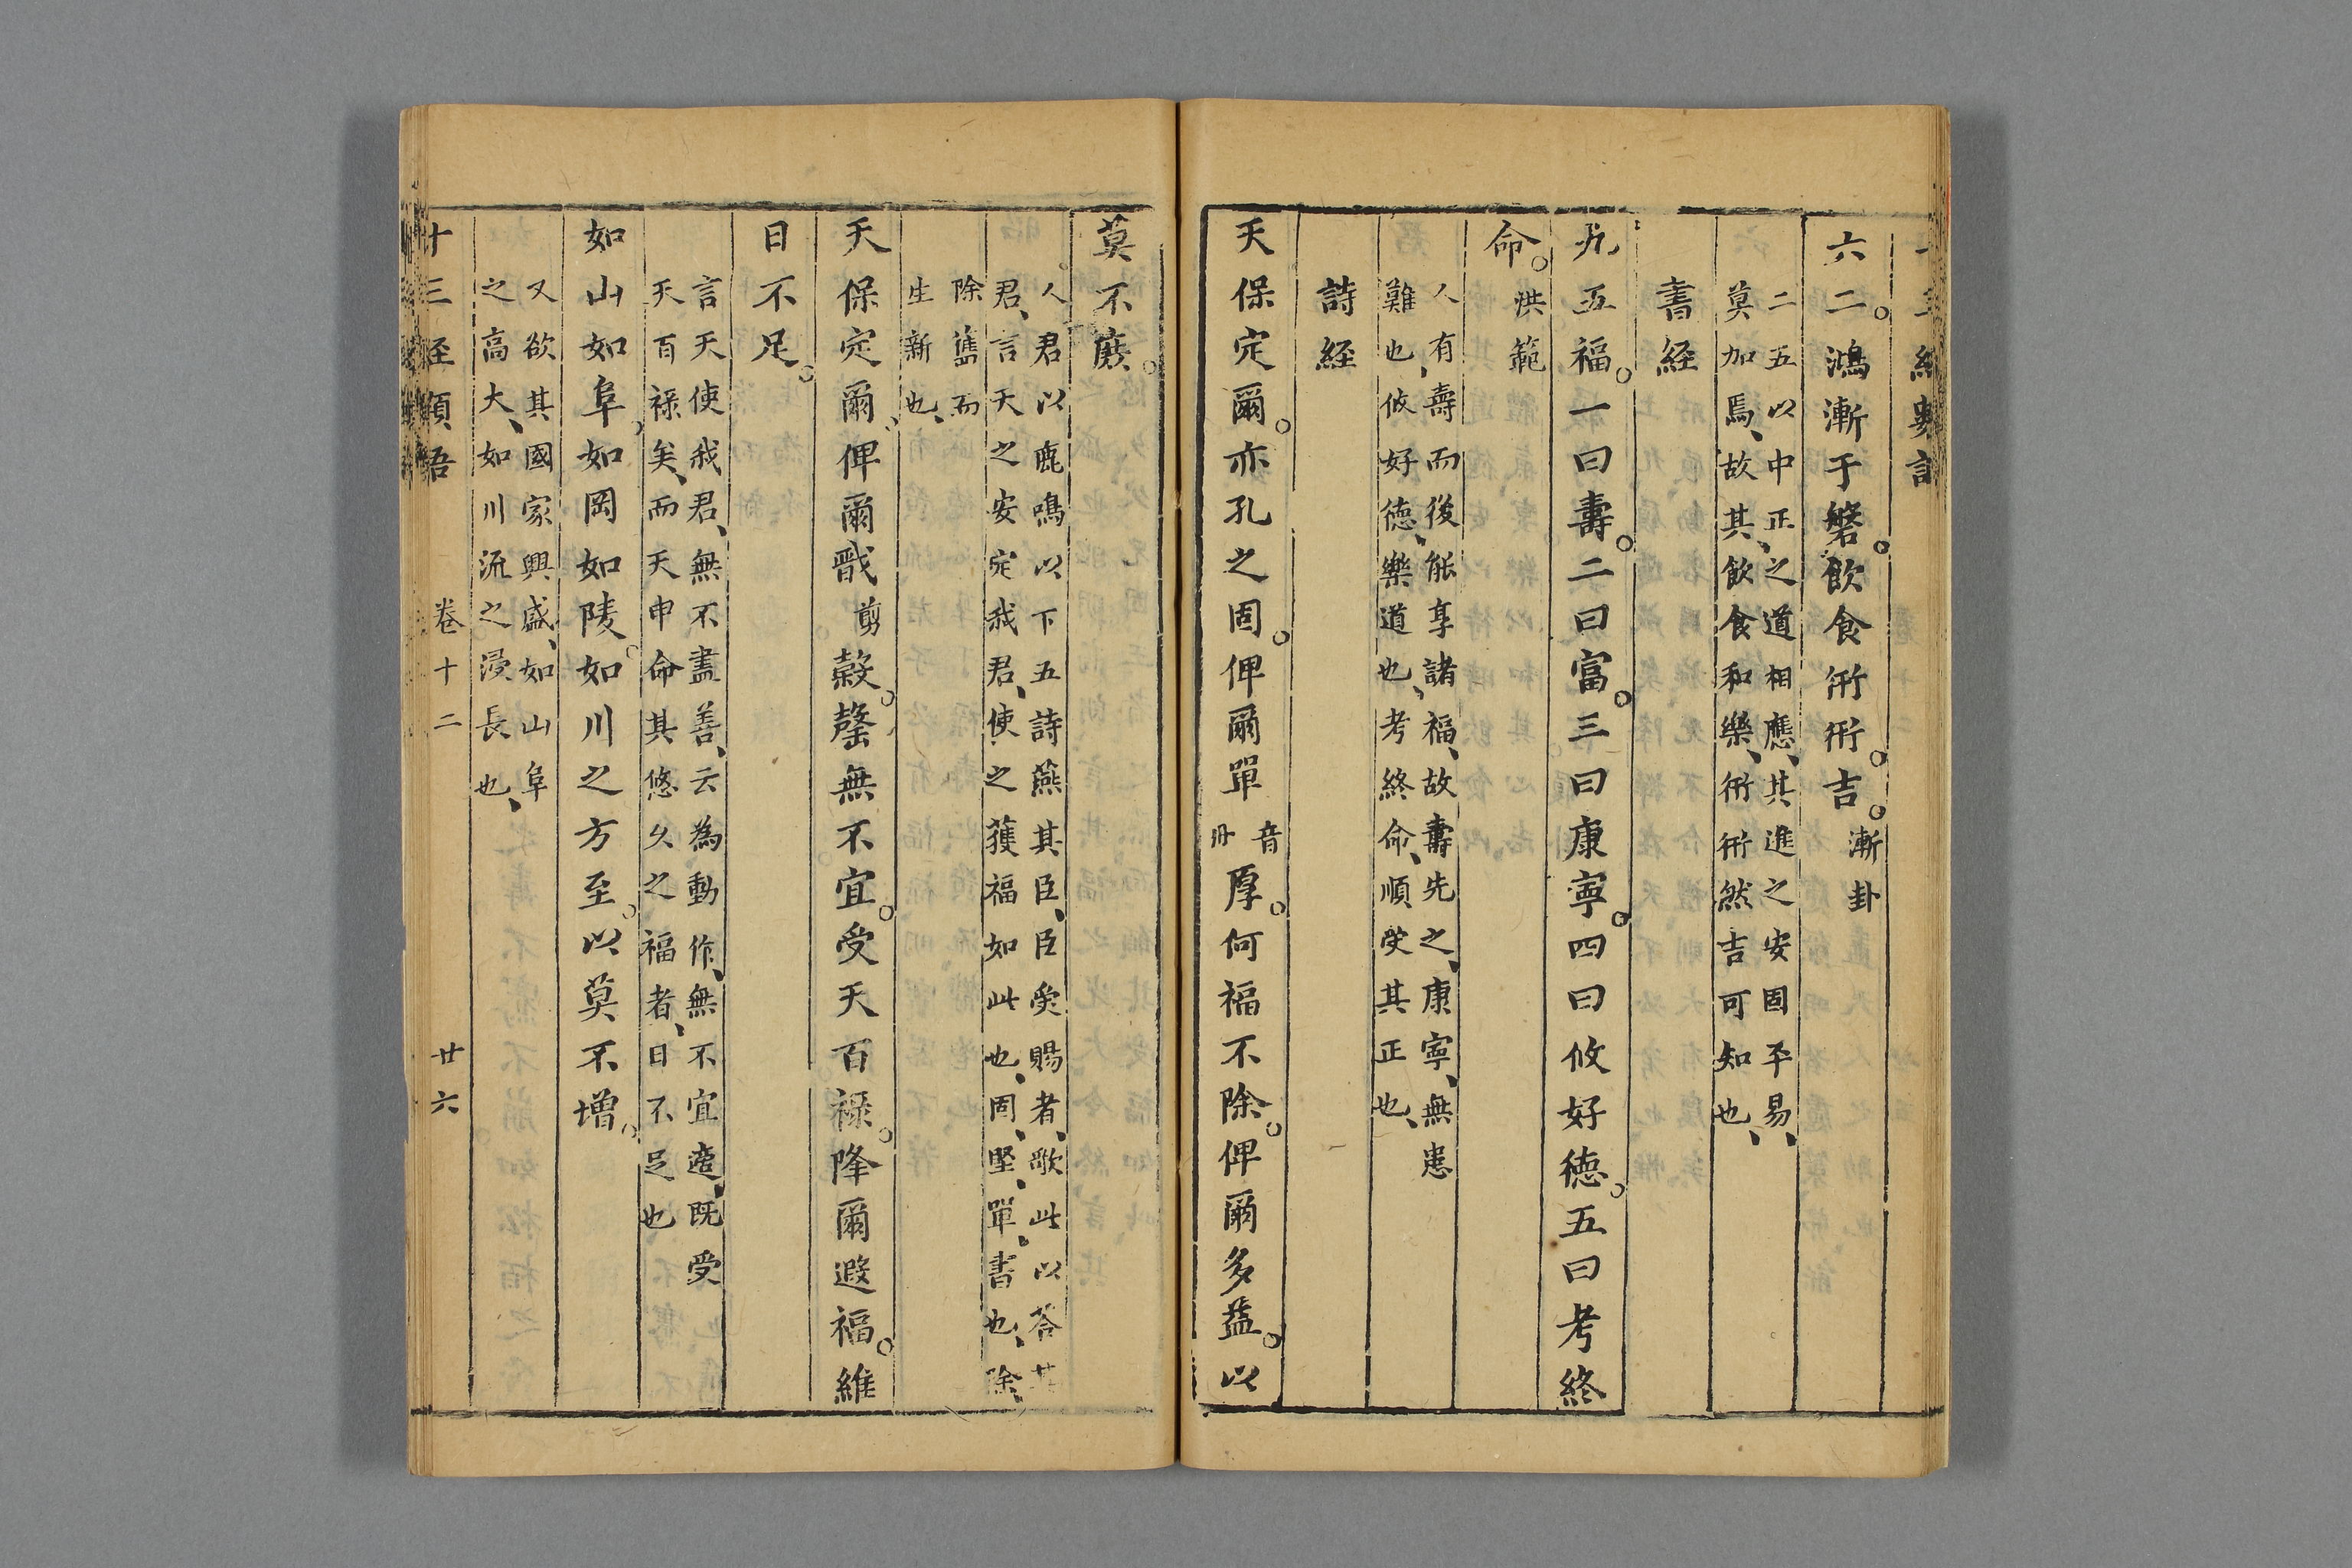 六二。鴻漸于磐。飲食衎衎。吉。漸卦
二五以中正、之道相應、其進之安固平易、
莫加焉、故其飲食和樂、衎衎然吉可知也、
書経
九五福。一曰壽。二曰富。三曰康寧。四曰攸好德。五曰考終
命。洪範
人有壽而後能享諸福、故壽先之、康寧、無患
難也、攸好德、樂道也、考終命、順受其正也、
詩経
天保定爾。亦孔之固。俾爾單音丹厚。何福不除。俾爾多益。以
莫不庶。
人君以鹿鳴以下五詩燕其臣、臣受賜者、歌此以答其
君、言天之安定我君、使之獲福如此也、固、堅、單、書也、除、
除舊而
生新也、
天保定爾。俾爾戩剪榖。罄無不宜。受天百祿。降爾遐福。維
日不足。
言天使我君、無不盡善、云為動作、無不宜適、既受
天百祿矣、而天申命其悠久之福者、日不足也
如山如阜。如岡如陵。如川之方至。以莫不增。
又欲其國家興盛、如山阜
之高大、如川流之浸長也、
十三経類語 卷十二 廿六